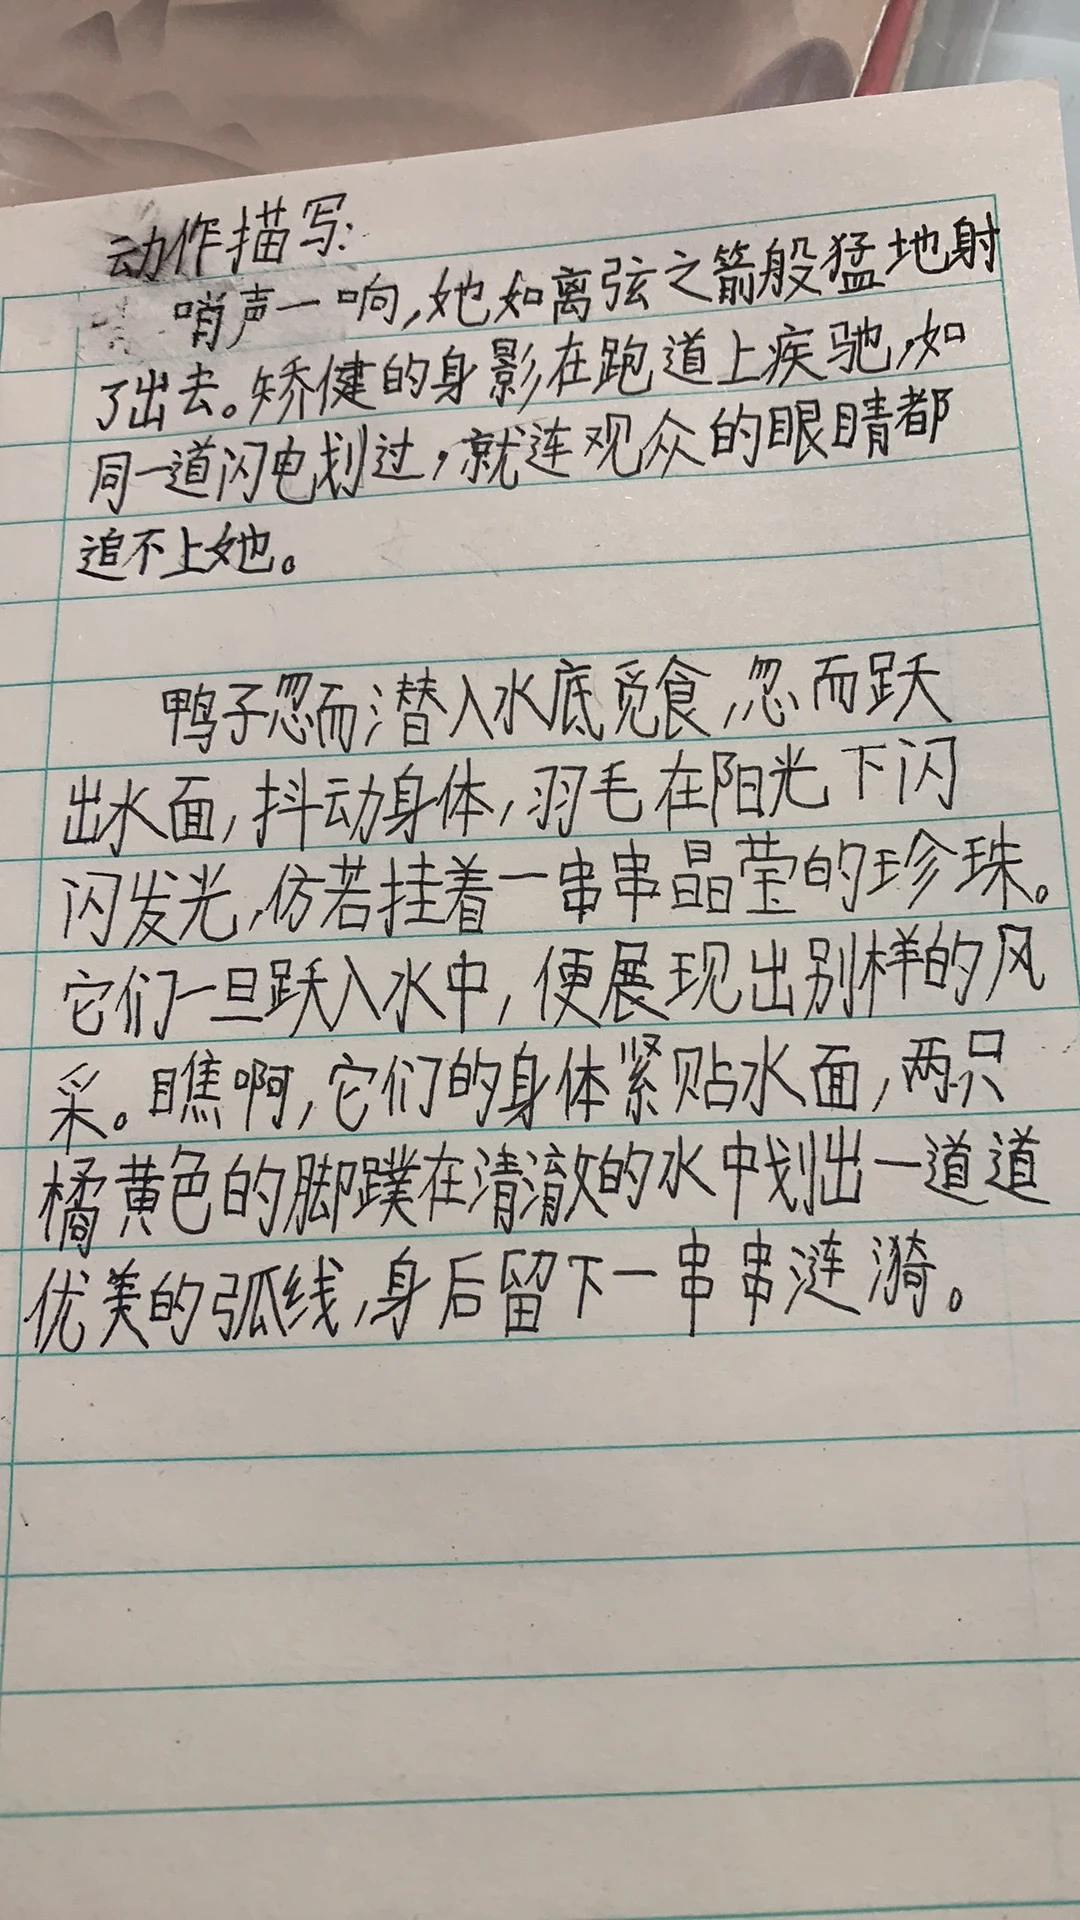 动作描写:
哨声一响,她如离弦之箭般猛地射
了出去。矫健的身影在跑道上疾驰,如
同一道闪电划过,就连观众的眼睛都
追不上她。
鸭子忽而潜入水底觅食,忽而跃
出水面,抖动身体,羽毛在阳光下闪
闪发光,仿若挂着一串串晶莹的珍珠。
它们一旦跃入水中,便展现出别样的风
采。瞧啊,它们的身体紧贴水面,两只
橘黄色的脚蹼在清澈的水中划出一道道
优美的弧线,身后留下一串串涟漪。